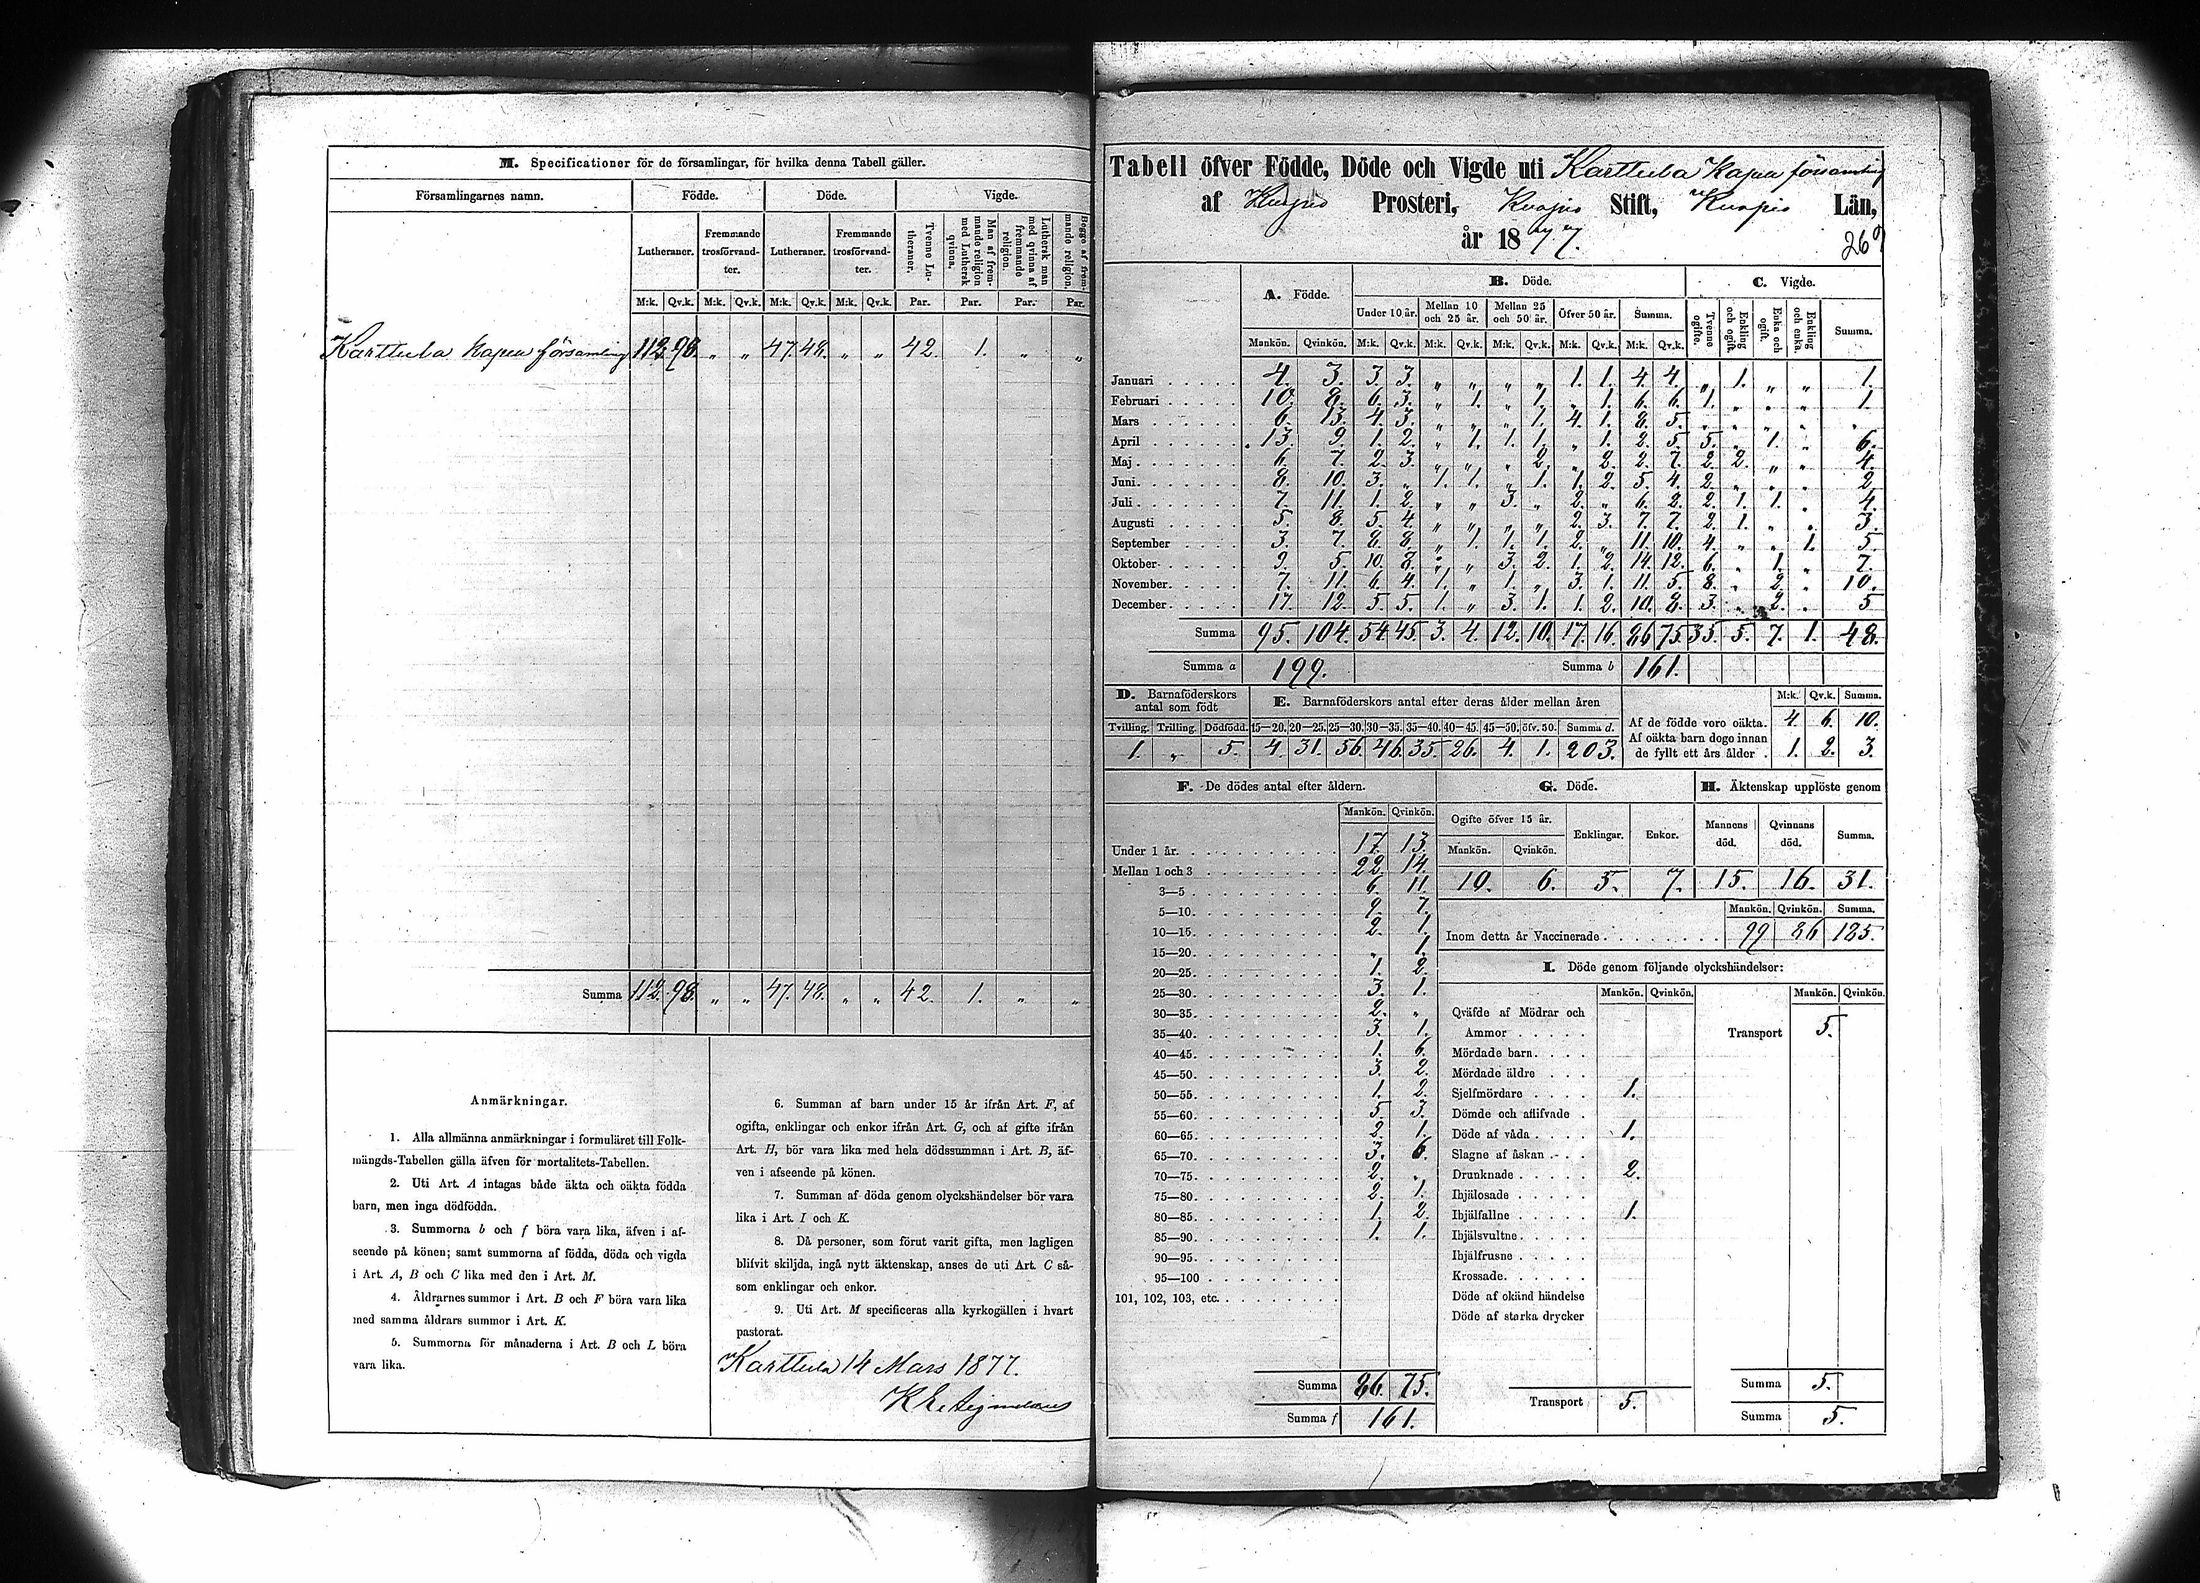 M. Specificationer för de församlingar, för hvilka denna Tabell gäller.
Församlingarnes namn. Födde. Döde. Vigde.
Lutheraner. Fremmande trosförvandter. Lutheraner. Fremmande trosförvandter. Tvenne Lutheraner. Man af fremmande religion med Luthersk qvinna. Luthersk man med qvinna af fremmande religion. Begge af fremmande religion.
M:k. Qv.k. M:k. Qv.k. M:k. Qv.k. M:k. Qv.k. Par. Par. Par. Par.
Karttula kapell församling 112. 98. „ „ 47. 48. „ „ 42. 1. „ „
Summa 112. 98. „ „ 47. 48. „ „ 42. 1. „ „
Anmärkningar.
1. Alla allmänna anmärkningar i formuläret till Folk-
mängds-Tabellen gälla äfven för mortalitets-Tabellen.
2. Uti Art. A intagas både äkta och oäkta födda
barn, men inga dödfödda.
3. Summorna b och f böra vara lika, äfven i af-
seende på könen; samt summorna af födda, döda och vigda
i Art. A, B och C lika med den i Art. M.
4. Åldrarnes summor i Art. B och F böra vara lika
med samma åldrars summor i Art. K.
5. Summorna för månaderna i Art. B och L böra
vara lika.
6. Summan af barn under 15 år ifrån Art. F, af
ogifta, enklingar och enkor ifrån Art. G, och af gifte ifrån
Art. H, bör vara lika med hela dödssumman i Art. B, äf-
ven i afseende på könen.
7. Summan af döda genom olyckshändelser bör vara
lika i Art. I och K.
8. Då personer, som förut varit gifta, men lagligen
blifvit skiljda, ingå nytt äktenskap, anses de uti Art. C så-
som enklingar och enkor.
9. Uti Art. M specificeras alla kyrkogällen i hvart
pastorat.
Karttula 14 Mars 1877.
Tabell öfver Födde, Döde och Vigde uti Karttula kapell församling
af Kuopio Prosteri, Kuopio Stift, Kuopio Län,
år 1877.
A. Födde. B. Döde. C. Vigde.
Under 10 år. Mellan 10 och 25 år. Mellan 25 och 50 år. Öfver 50 år. Summa. Tvenne ogifte. Enkling och ogift. Enka och ogift. Enkling och enka. Summa.
Mankön. Qvinkön. M:k. Qv.k. M:k. Qv.k. M:k. Qv.k. M:k. Qv.k. M:k. Qv.k.
Januari 4. 3. 3. 3. „ „ „ „ 1. 1. 4. 4. „ 1. „ „ 1.
Februari 10. 8. 6. 3. „ 1. „ 1. „ 1. 6. 6. 1. „ „ „ 1.
Mars 6. 13. 4. 3. „ „ „ 1. 4. 1. 8. 5. „ „ „ „ „
April 13. 9. 1. 2. „ 1. 1. 1. „ 1. 2. 5. 5. „ 1. „ 6.
Maj 6. 7. 2. 3. „ „ „ 2. „ 2. 2. 7. 2. 2. „ „ 4.
Juni 8. 10. 3. „ 1. 1. „ 1. 1. 2. 5. 4. 2. „ „ „ 2.
Juli 7. 11. 1. 2. „ „ 3. „ 2. „ 6. 2. 2. 1. 1. „ 4.
Augusti 5. 8. 5. 4. „ „ „ „ 2. 3. 7. 7. 2. 1. „ „ 3.
September 3. 7. 8. 8. „ 1. 1. 1. 2. „ 11. 10. 4. „ „ 1. 5.
Oktober 9. 5. 10. 8. „ „ 3. 2. 1. 2. 14. 12. 6. „ 1. „ 7.
November 7. 11. 6. 4. 1. „ 1. „ 3. 1. 11. 5. 8. „ 2. „ 10.
December 17. 12. 5. 5. 1. „ 3. 1. 1. 2. 10. 8. 3. „ 2. „ 5
Summa 95. 104. 54. 45. 3. 4. 12. 10. 17. 16. 86 75. 35. 5. 7. 1. 48.
Summa a 199. Summa b 161.
D. Barnaföderskors antal som födt
Tvilling. Trilling. Dödfödd.
1. „ 5.
E. Barnaföderskors antal efter deras ålder mellan åren
15—20. 20—25. 25—30. 30—35. 35—40. 40—45. 45—50. öfv. 50. Summa d.
4. 31. 56. 46. 35. 26. 4. 1. 203.
M:k. Qv.k. Summa.
Af de födde voro oäkta. 4. 6. 10.
Af oäkta barn dogo innan
de fyllt ett års ålder. 1. 2. 3.
F. De dödes antal efter åldern.
Mankön. Qvinkön.
Under 1 år. 17. 13.
Mellan 1 och 3 22. 14.
3—5 6. 11.
5—10. 9. 7.
10—15. 2. 1.
15—20. „ 1.
20—25. 1. 2.
25—30. 3. 1.
30—35. 2. „
35—40. 3. 1.
40—45. 1. 6.
45—50. 3. 2.
50—55. 1. 2.
55—60. 5. 3.
60—65. 2. 1.
65—70. 3. 6.
70—75. 2. „
75—80. 2. 1.
80—85. 1. 2.
85—90. 1. 1.
90—95.
95—100
101, 102, 103, etc.
Summa 86. 75.
Summa f 161.
G. Döde.
Ogifte öfver 15 år. Enklingar. Enkor.
Mankön. Qvinkön.
10. 6. 5. 7.
H. Äktenskap upplöste genom
Mannens död. Qvinnans död. Summa.
15. 16. 31.
Mankön. Qvinkön. Summa.
Inom detta år Vaccinerade 99 86 185.
I. Döde genom följande olyckshändelser:
Mankön. Qvinkön. Mankön. Qvinkön.
Qväfde af Mödrar och
Ammor Transport 5.
Mördade barn.
Mördade äldre
Sjelfmördare 1.
Dömde och aflifvade
Döde af våda 1.
Slagne af åskan
Drunknade 2.
Ihjälosade
Ihjälfallne 1.
Ihjälsvultne
Ihjälfrusne
Krossade.
Döde af okänd händelse
Döde af starka drycker
Transport 5. Summa 5.
Summa 5.